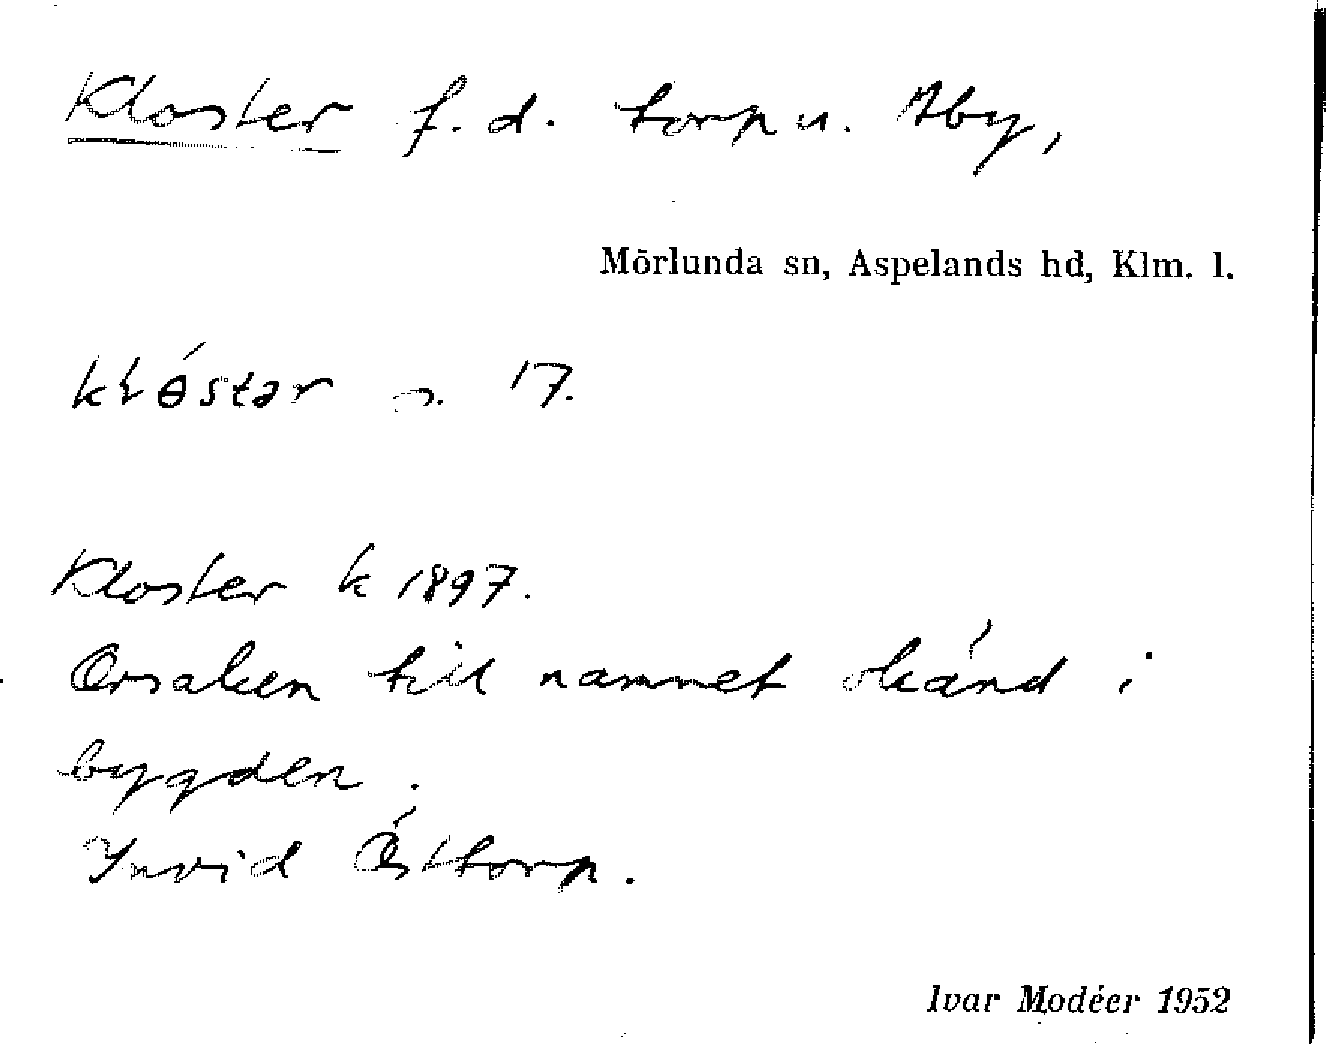 Kloster f.d. torp u. Åby,
Mörlunda sn, Aspelands hd, Klm. l.
klɵ́stər n. 17.
Kloster k 1897.
Orsaken till namnet okänd i
bygden.
Invid Östtorp.
Ivar Modéer 1952